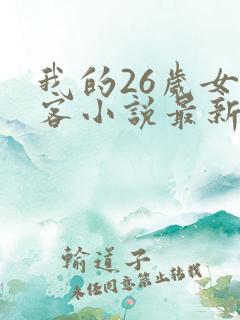 我的26岁女
客小说最新
输道子
未经同意禁止转载